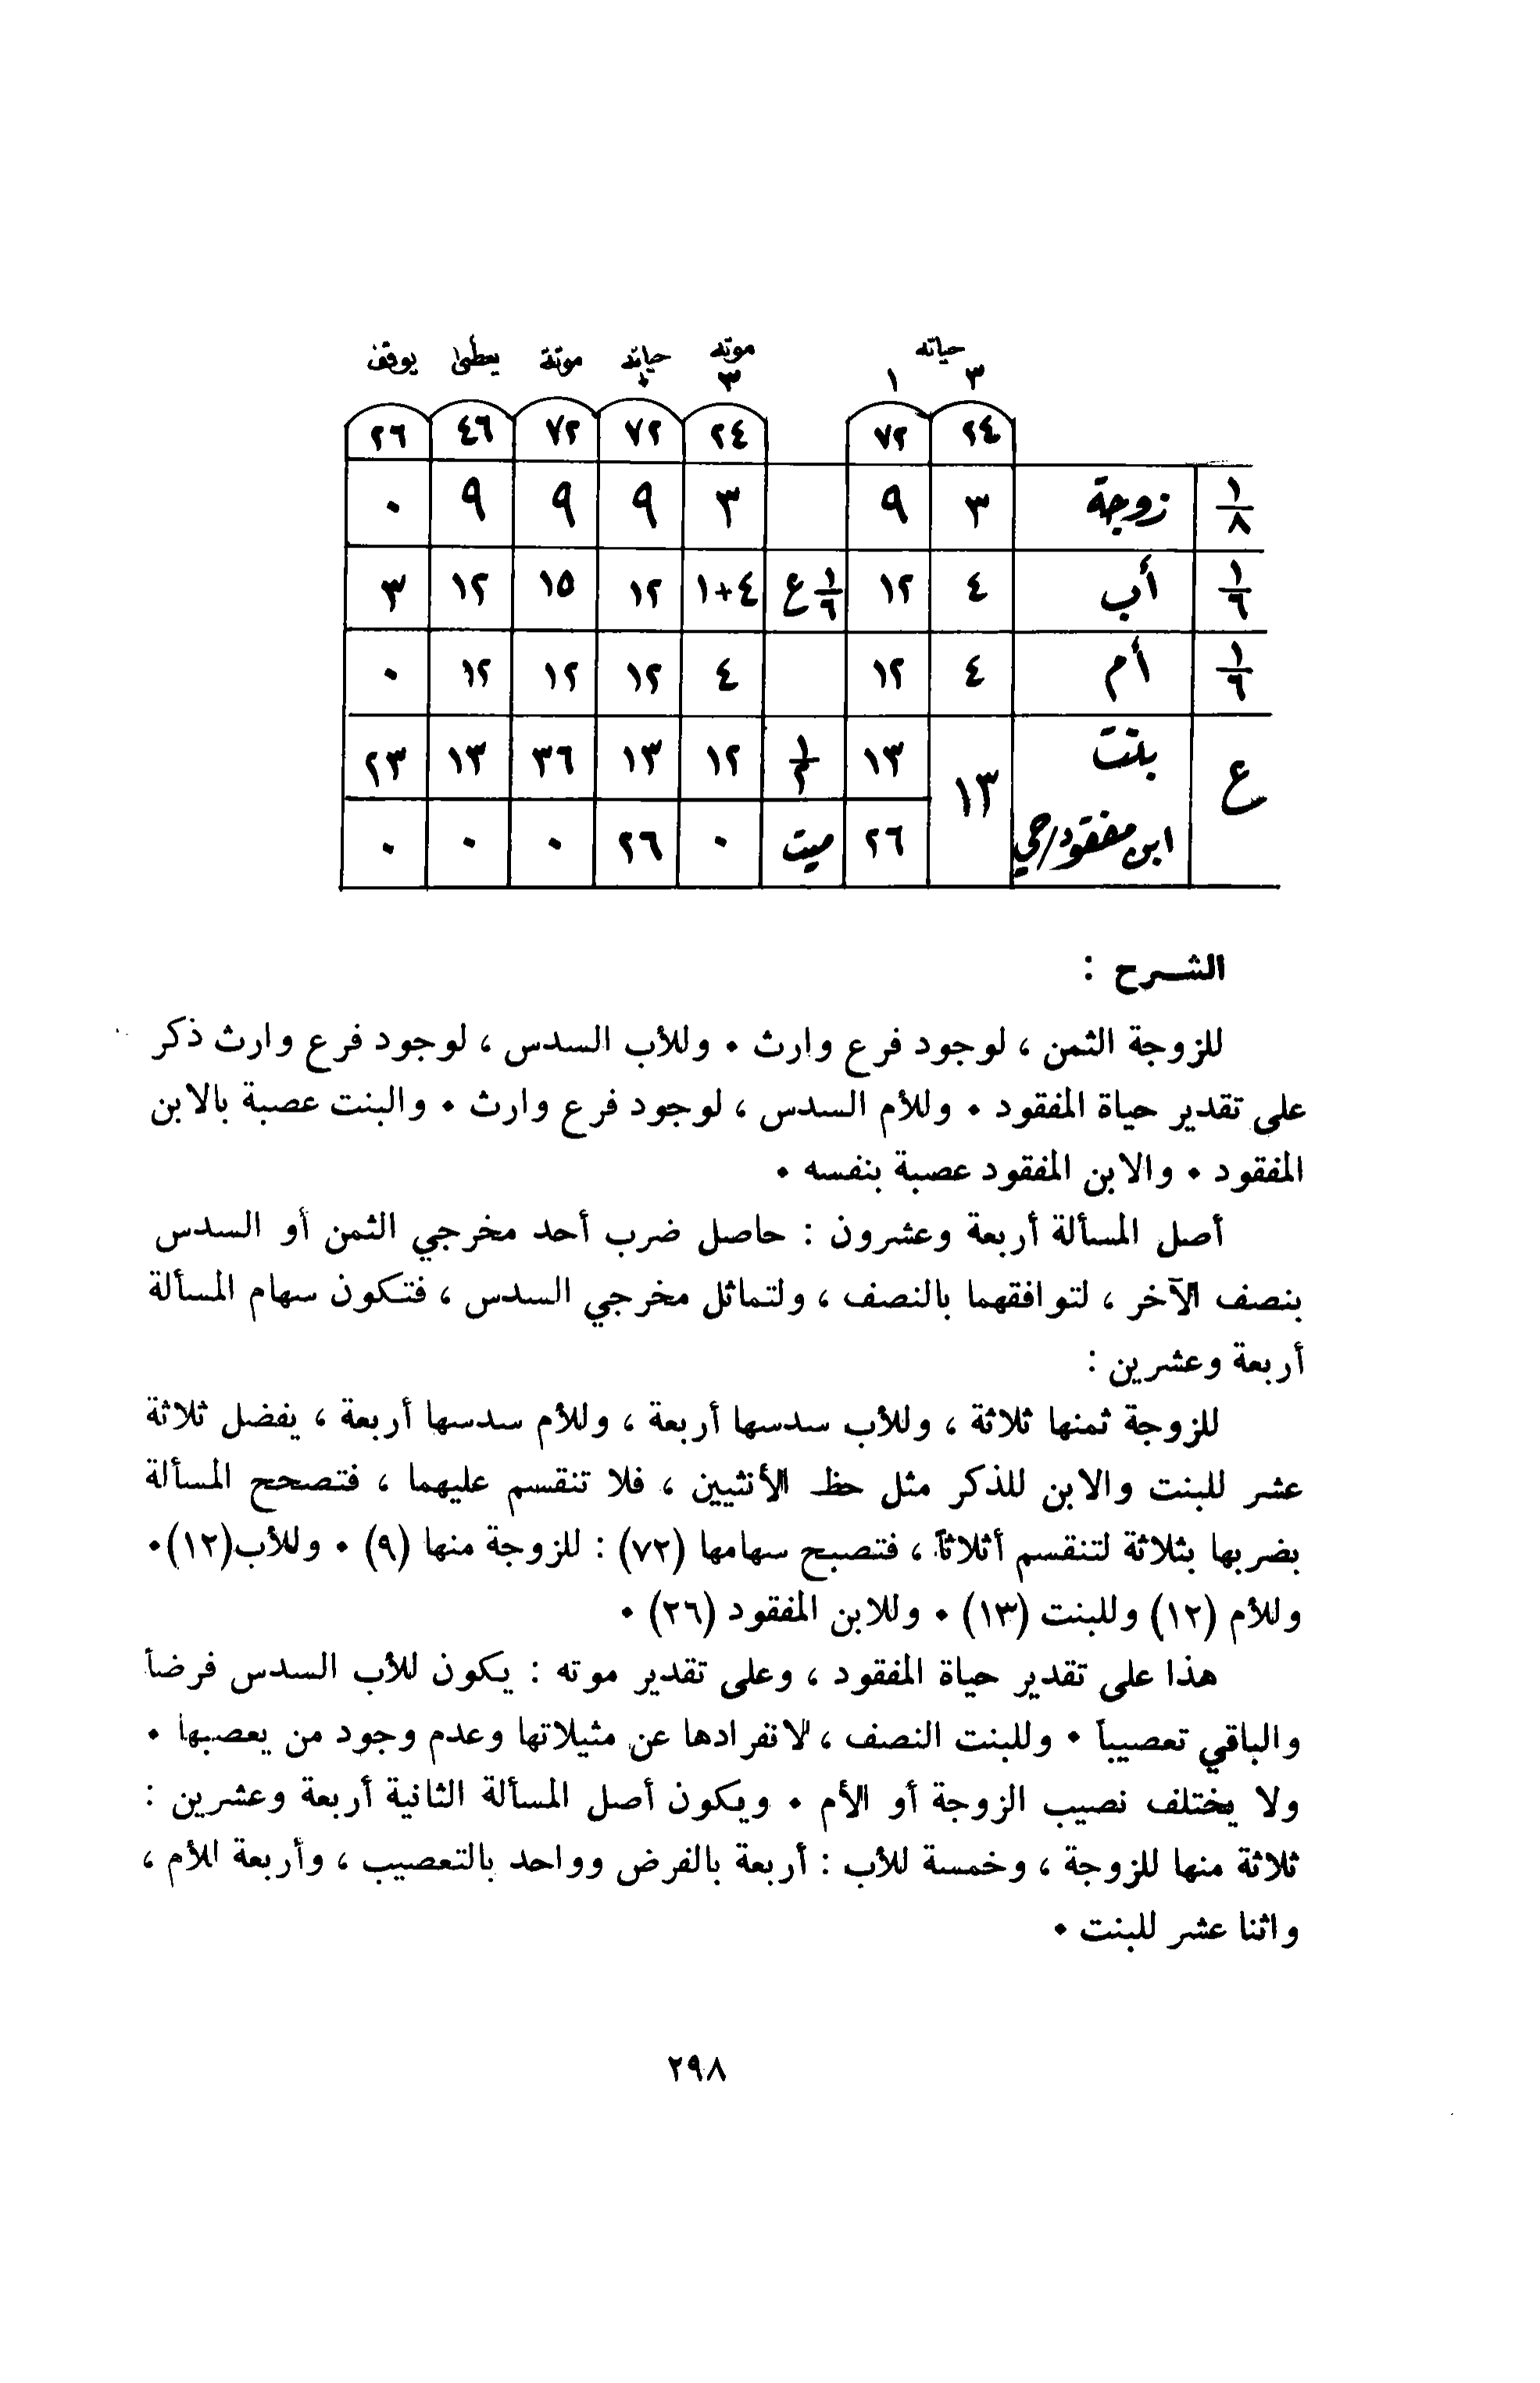 حياته موته حياته موتة يعطى يوقف
٣ ١ ٣ ١
٢٤ ٧٢ ٢٤ ٧٢ ٧٢ ٤٦ ٢٦
١/٨ زوجة ٣ ٩ ٣ ٩ ٩ ٩ ٠
١/٦ أب ٤ ١٢ ١/٦ ع ٤+١ ١٢ ١٥ ١٢ ٣
١/٦ أم ٤ ١٢ ٤ ١٢ ١٢ ١٢ ٠
ع بنت ١٣ ١٣ ١/٢ ١٢ ١٣ ٣٦ ١٣ ٢٣
ابن مفقود/حي ٢٦ ميت ٠ ٢٦ ٠ ٠ ٠
الشرح :
للزوجة الثمن ، لوجود فرع وارث • وللأب السدس ، لوجود فرع وارث ذكر
على تقدير حياة المفقود • وللأم السدس ، لوجود فرع وارث • والبنت عصبة بالابن
المفقود • والابن المفقود عصبة بنفسه •
أصل المسألة أربعة وعشرون : حاصل ضرب أحد مخرجي الثمن أو السدس
بنصف الآخر ، لتوافقهما بالنصف ، ولتماثل مخرجي السدس ، فتكون سهام المسألة
أربعة وعشرين :
للزوجة ثمنها ثلاثة ، وللأب سدسها أربعة ، وللأم سدسها أربعة ، يفضل ثلاثة
عشر للبنت والابن للذكر مثل حظ الأنثيين ، فلا تنقسم عليهما ، فتصحح المسألة
بضربها بثلاثة لتنقسم أثلاثاً ، فتصبح سهامها (٧٢) : للزوجة منها (٩) • وللأب(١٢)•
وللأم (١٢) وللبنت (١٣) • وللابن المفقود (٢٦) •
هذا على تقدير حياة المفقود ، وعلى تقدير موته : يكون للأب السدس فرضاً
والباقي تعصيباً • وللبنت النصف ، لانفرادها عن مثيلاتها وعدم وجود من يعصبها •
ولا يختلف نصيب الزوجة أو الأم • ويكون أصل المسألة الثانية أربعة وعشرين :
ثلاثة منها للزوجة ، وخمسة للأب : أربعة بالفرض وواحد بالتعصيب ، وأربعة للأم ،
واثنا عشر للبنت •
٢٩٨